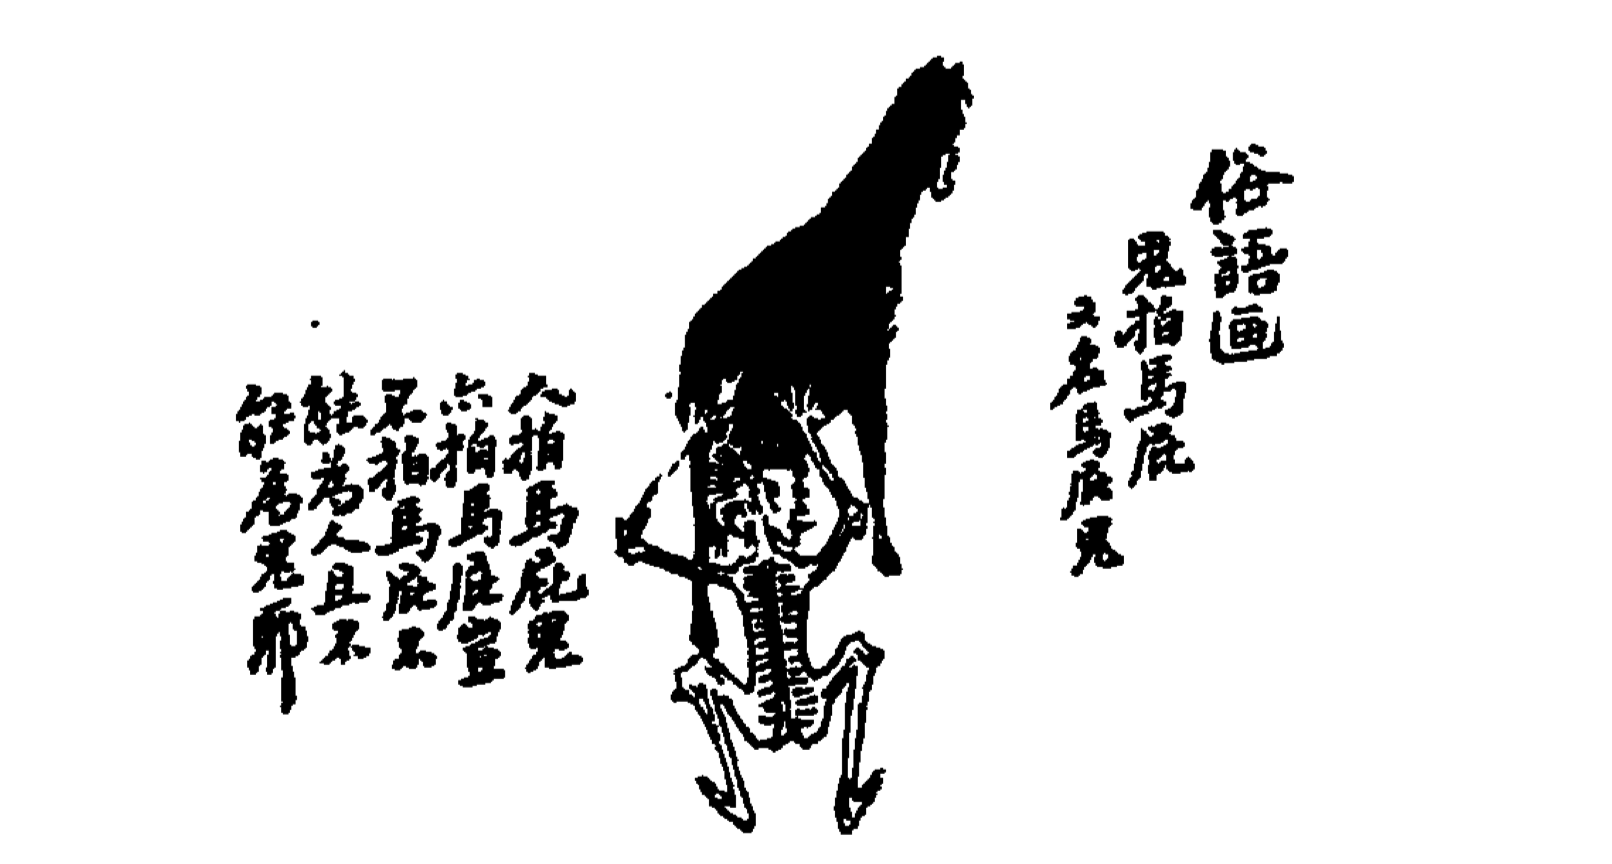 俗語画
鬼拍馬屁
又名馬屁鬼
人拍馬屁鬼
亦拍馬屁豈
不拍馬屁不
能為人且不
能為鬼耶